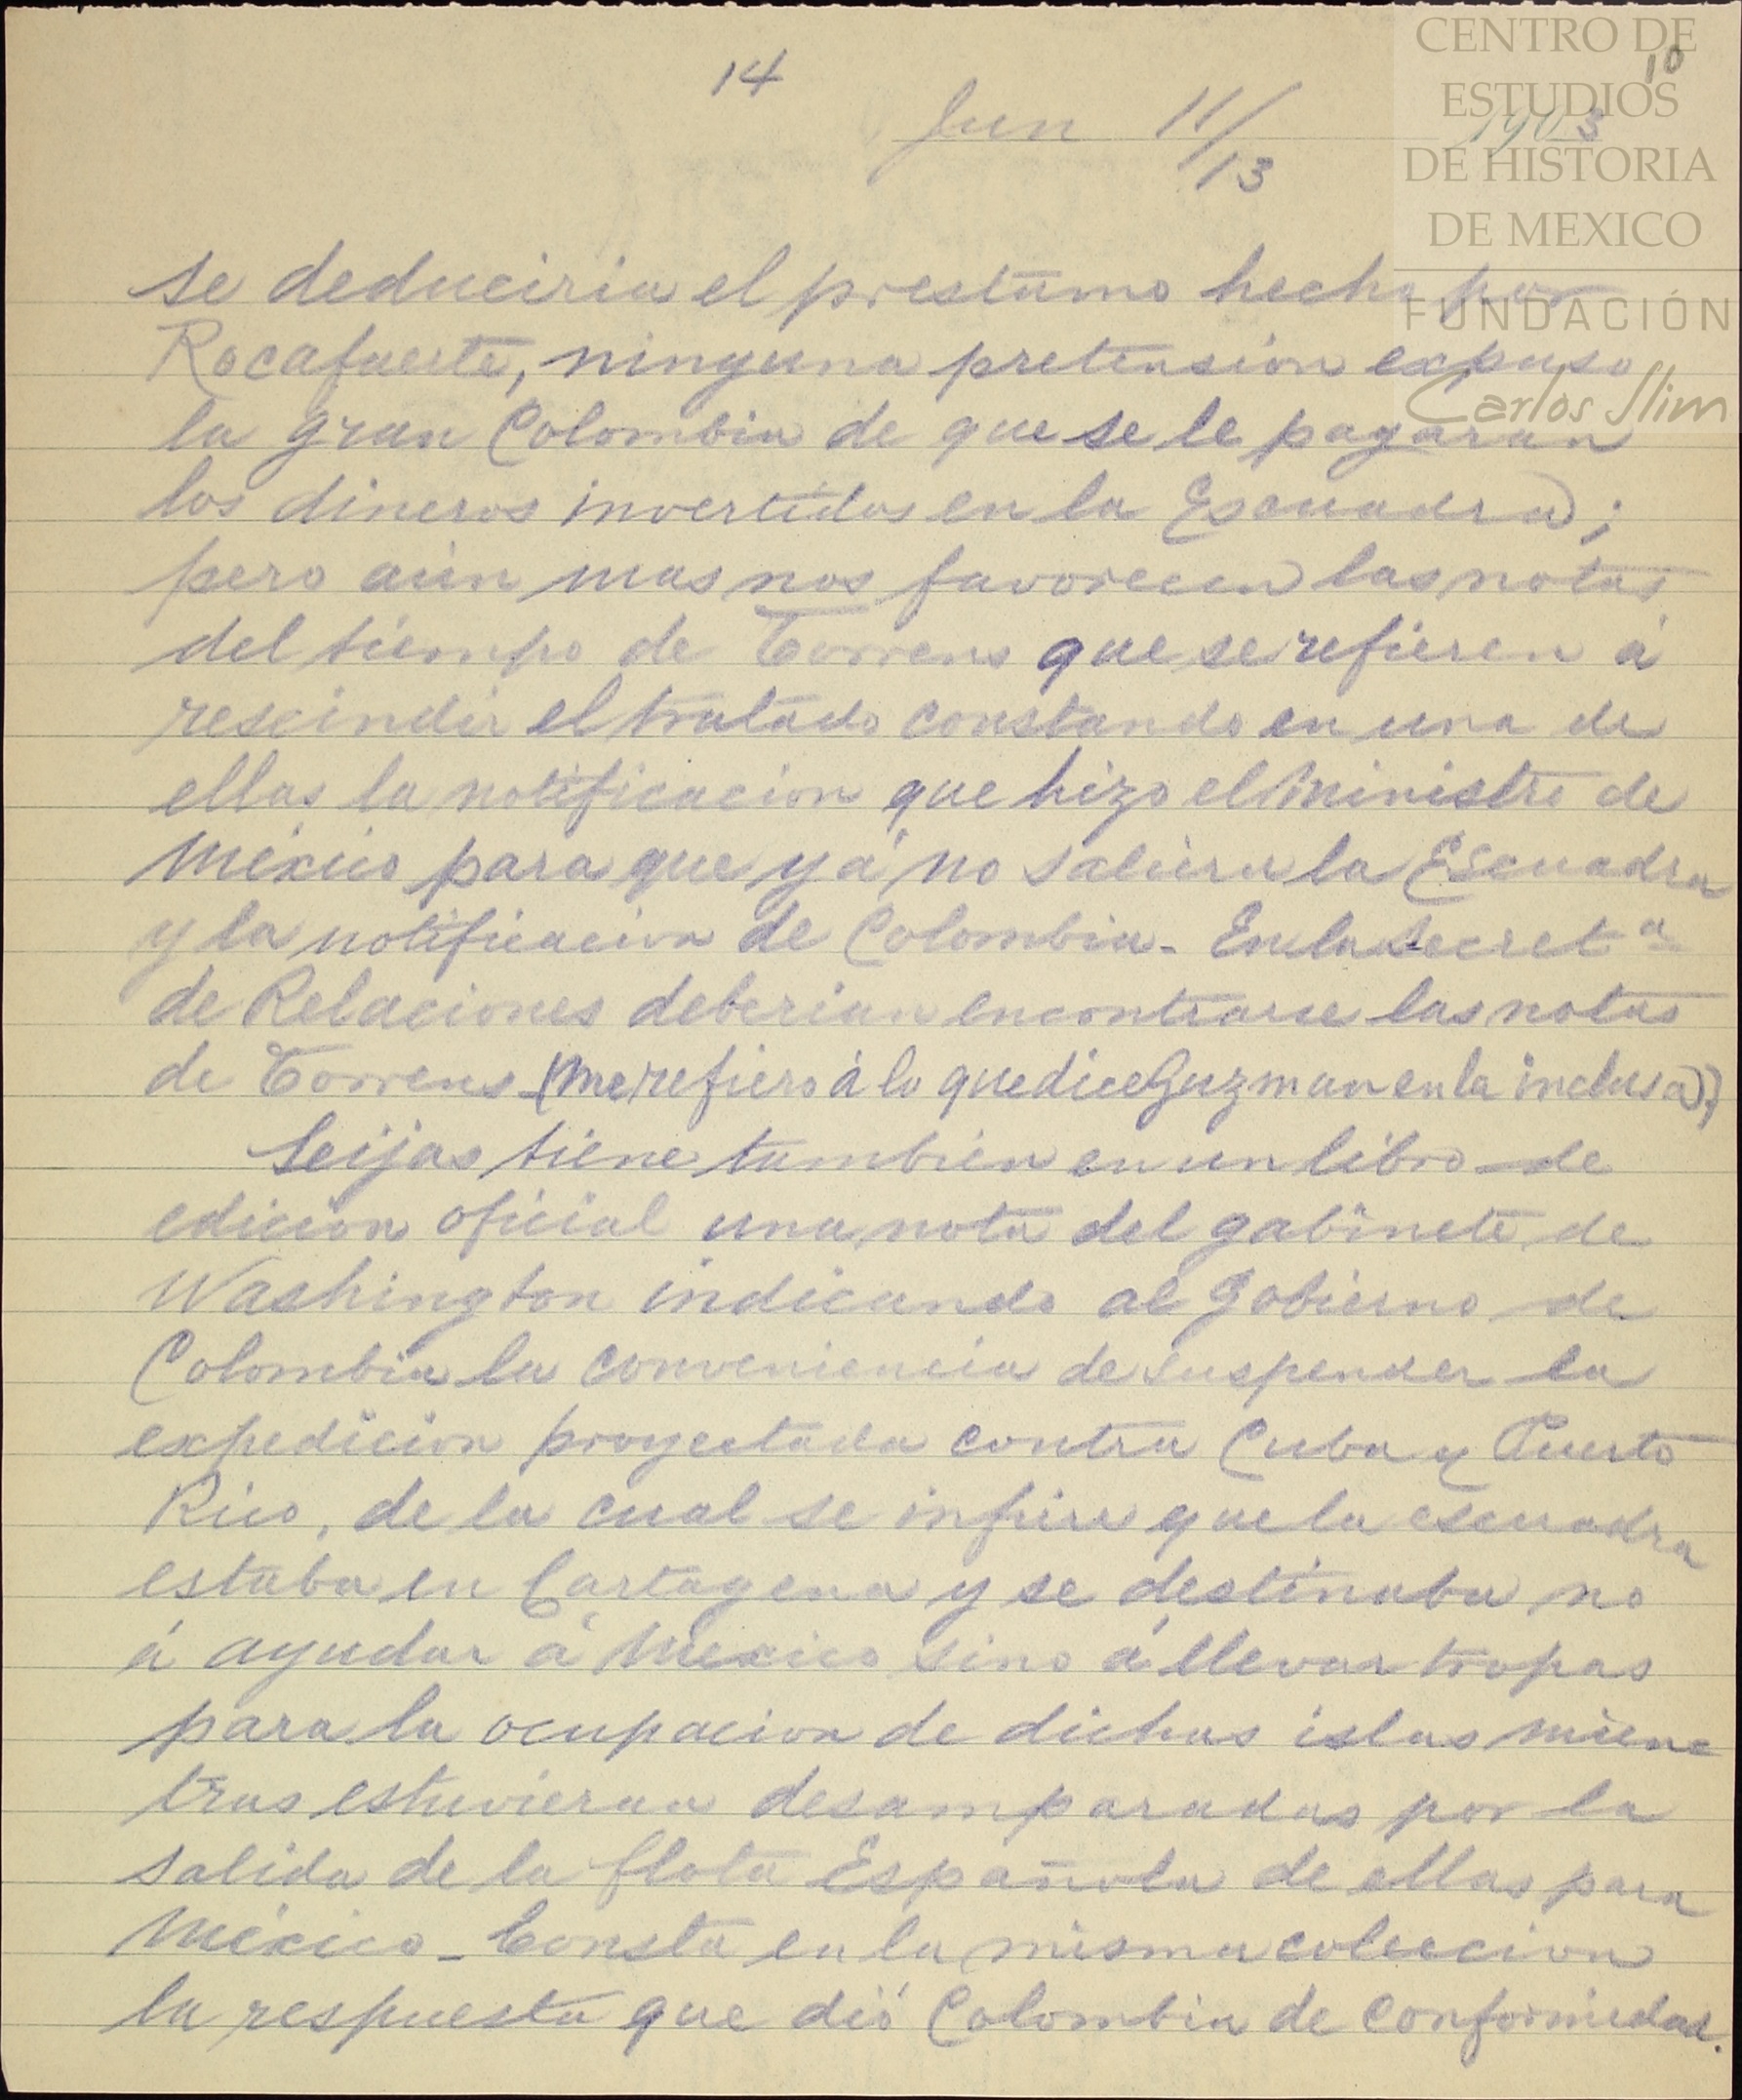 14
10
Jun 11/13
1903
CENTRO DE
ESTUDIOS
DE HISTORIA
DE MEXICO
FUNDACIÓN
Carlos Slim
se deduciria el prestamo hecho por
Rocafuerte, ninguna pretension expuso
la gran Colombia de que se le pagaran
los dineros invertidos en la Escuadra;
pero aún mas nos favorecen las notas
del tiempo de Torrens que se refieren á
rescindir el tratado constando en una de
ellas la notificacion que hizo el Ministro de
México para que yá no saliera la Escuadra
y la notificacion de Colombia. En la Secretª
de Relaciones deberian encontrarse las notas
de Torrens (me refiero á lo que dice Guzman en la inclusa);
Seijas tiene tambien en un libro de
edicion oficial una nota del gabinete de
Washington indicando al Gobierno de
Colombia la conveniencia de suspender la
expedicion proyectada contra Cuba y Puerto
Rico, de la cual se infiere que la escuadra
estaba en Cartagena y se destinaba no
á ayudar á Mexico sino á llevar tropas
para la ocupacion de dichas islas mien-
tras estuvieran desamparadas por la
salida de la flota Española de ellas para
México - Consta en la misma coleccion
la respuesta que dió Colombia de conformidad.